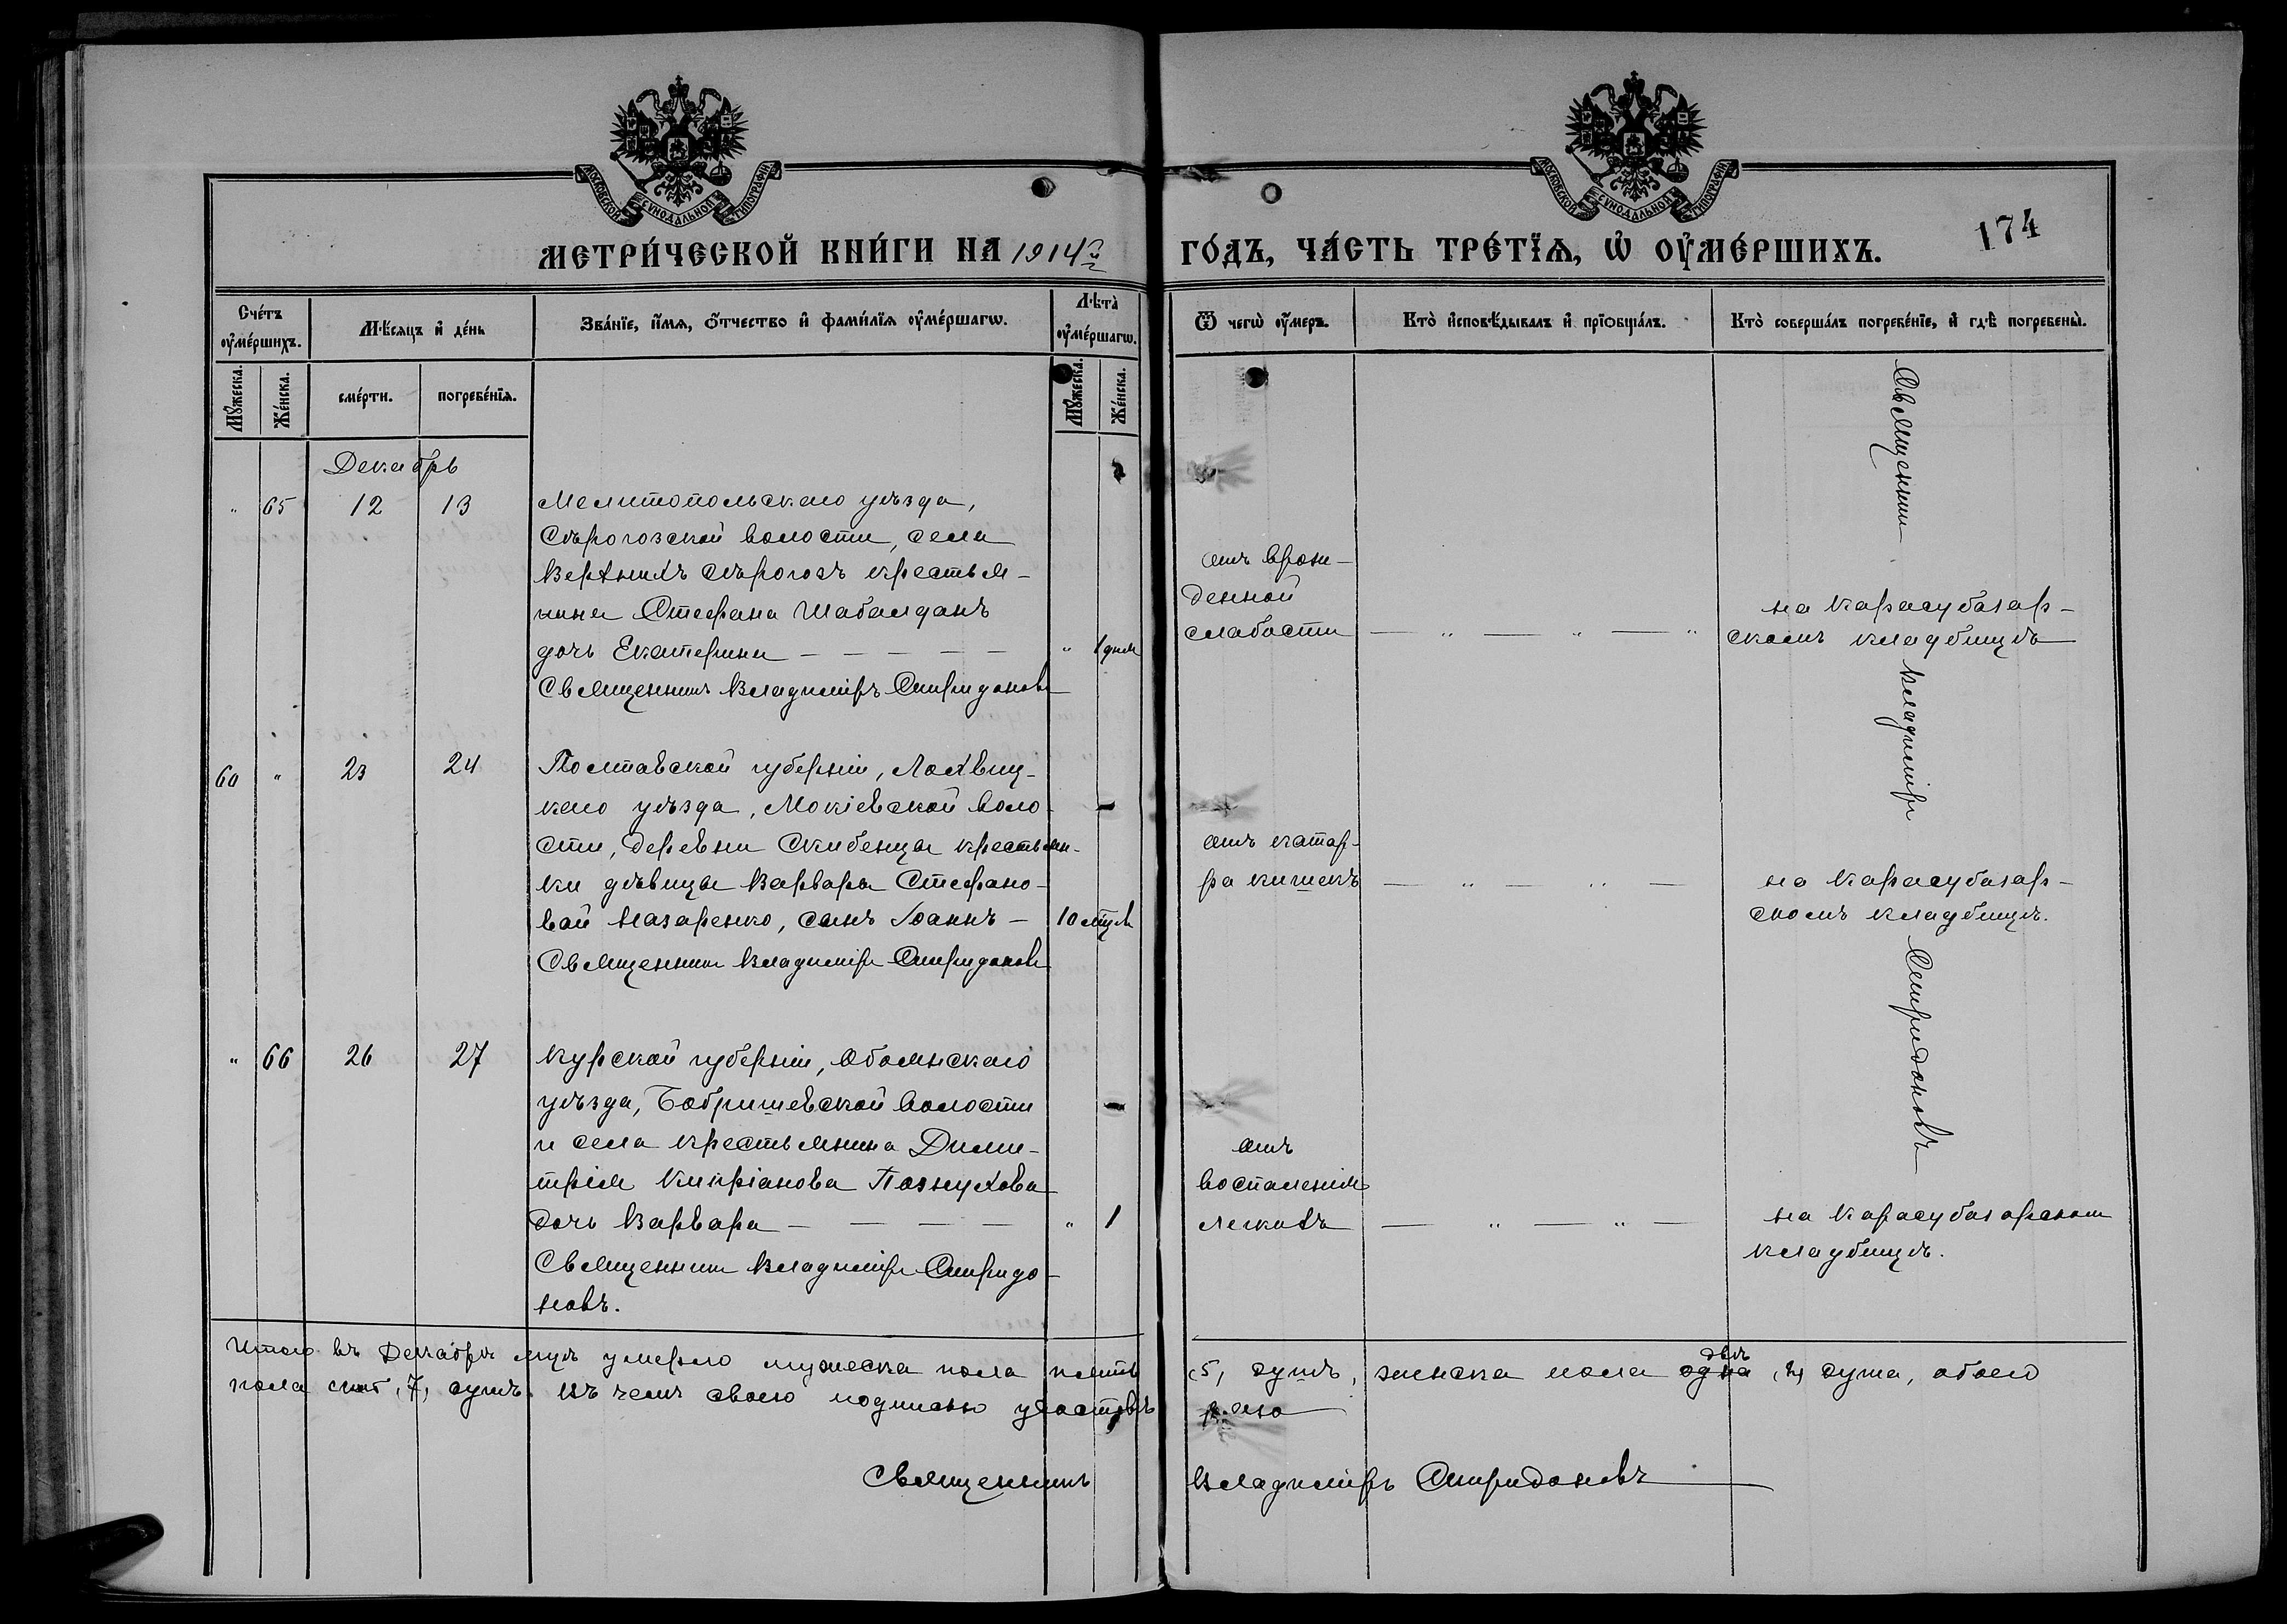 МОСКОВСКОЙ СѴНОДАЛЬНОЙ ТИПОГРАФІИ
МОСКОВСКОЙ СѴНОДАЛЬНОЙ ТИПОГРАФІИ
МЕТРИ́ЧЕСКОЙ КНИ́ГИ НА 1914й
ГО́ДЪ, ЧА́СТЬ ТРЕ́ТЇѦ, Ѡ҆ ОУ҆МЕ́РШИХЪ.
174
Сче́тъ оу҆ме́ршихъ.
Мꙋ́жеска.
Же́нска.
Мѣ́сяцъ и҆ де́нь
сме́рти.
погребе́нїѧ.
Зва́нїе, и҆́мѧ, ѻ҆́тчество и҆ фами́лїѧ оу҆ме́ршагѡ.
Лѣта̀ оу҆ме́ршагѡ.
Мꙋ́жеска.
Же́нска.
Ѿ чегѡ̀ оу҆́меръ.
Кто̀ и҆сповѣ́дывалъ и҆ прїѻбща́лъ.
Кто̀ соверша́лъ погребе́нїе, и҆ гдѣ̀ погребены̀.
Декабрь
" 65 12 13
Мелитопольскаго уѣзда,
Сѣрогозской волости, села
Верхнихъ Сѣрогозъ крестья-
нина Стефана Шабалданъ
дочь Екатерина — — — — —
" 1 дня
Священникъ Владиміръ Спиридоновъ
отъ врож-
денной
слабости — " — " — "
на Карасубазар-
скомъ кладбищѣ
60 " 23 24
Полтавской губерніи, Лохвиц-
каго уѣзда, Мокіевской воло-
сти, деревни Скибенцы крестьян-
ки дѣвицы Варвары Стефано-
вой Назаренко, сынъ Іоаннъ —
10 мцев
Священникъ Владиміръ Спиридоновъ
отъ катар-
ра кишекъ — " — " —
на Карасубазар-
скомъ кладбищѣ.
" 66 26 27
Курской губерніи, Обоянскаго
уѣзда, Бобрышевской волости
и села крестьянина Дими-
трія Кипріанова Позлухова
дочь Варвара — — — —
" 1
Священникъ Владиміръ Спиридо-
новъ.
отъ
воспаленія
легкихъ — " — " —
на Карасубазарском
кладбищѣ.
Священник
Владиміръ
Спиридоновъ
Итого въ Декабрѣ мцѣ умерло мужеска пола пять (5) душъ, женска пола одна двѣ (2) душа, обоего
пола семь (7) душъ. Въ чемъ своею подписью удостовѣряю
Священникъ Владиміръ Спиридоновъ